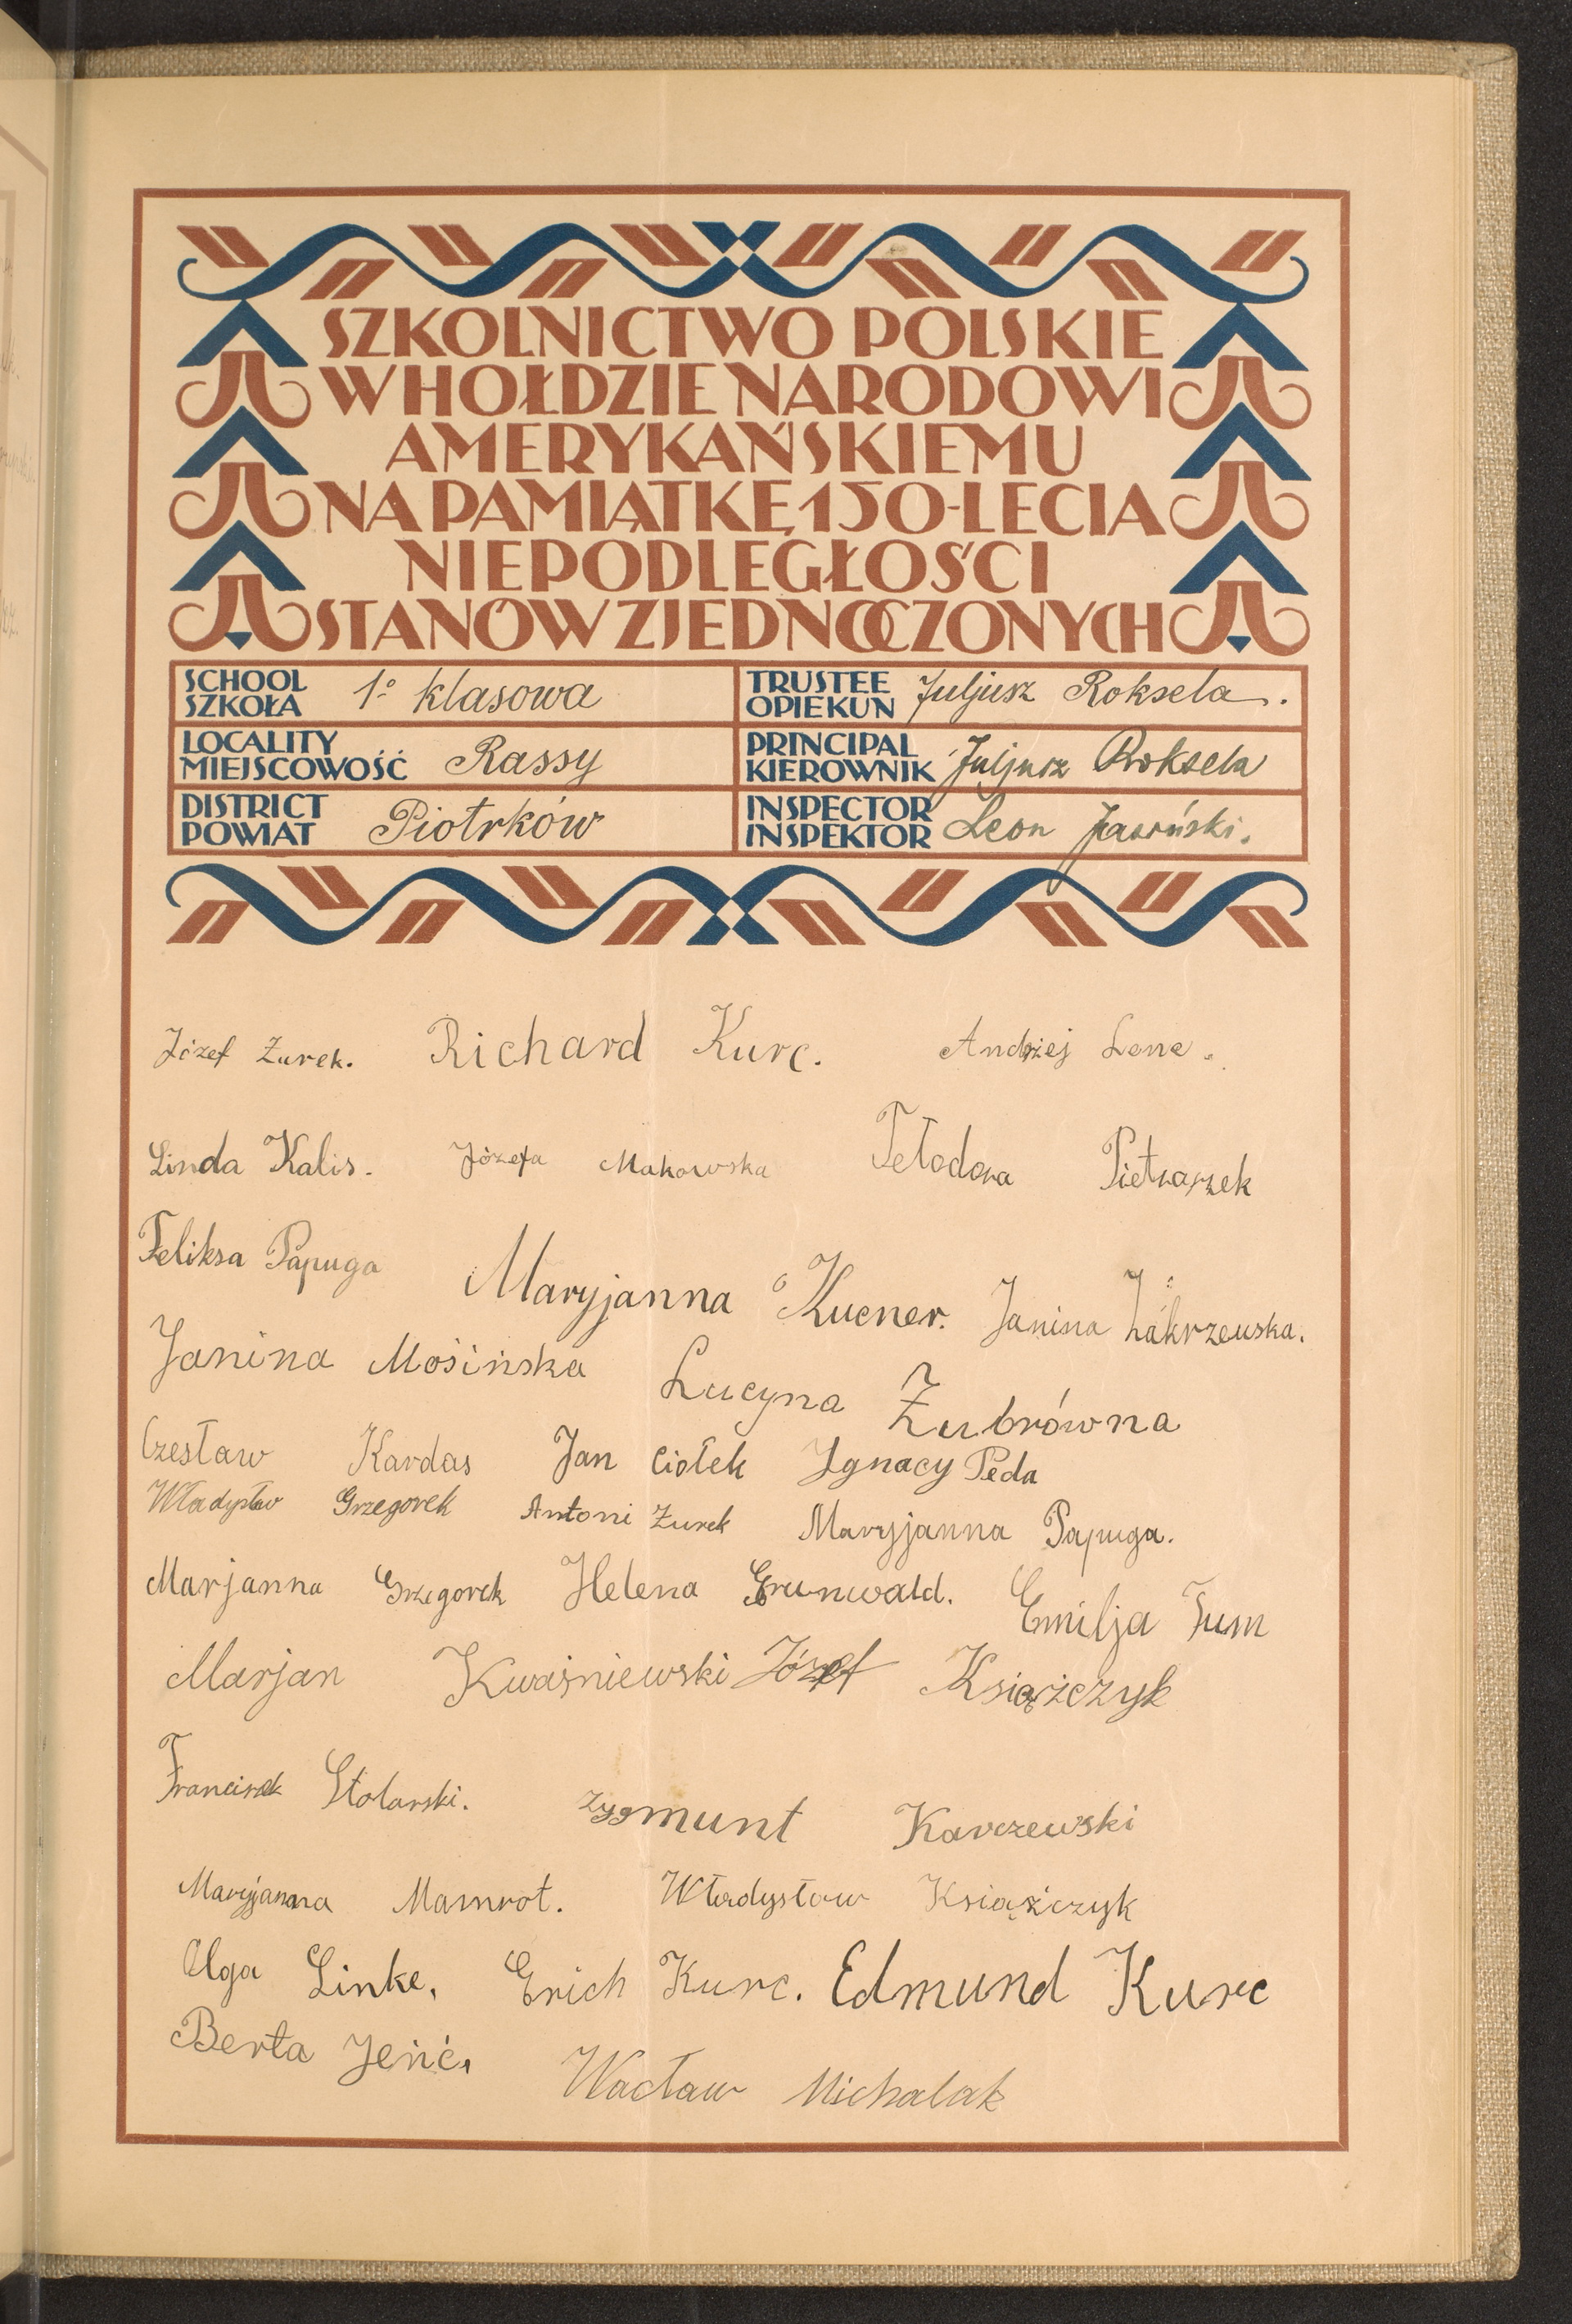 SZKOLNICTWO POLSKIE
W HOŁDZIE NARODOWI
AMERYKAŃSKIEMU
NA PAMIĄTKĘ 150-LECIA
NIEPODLEGŁOŚCI
STANÓW ZJEDNOCZONYCH
SCHOOL
SZKOŁA 1º klasowa
TRUSTEE
OPIEKUN Juljusz Roksela.
LOCALITY
MIEJSCOWOŚĆ Rassy
PRINCIPAL
KIEROWNIK Juljusz Roksela
DISTRICT
POWIAT Piotrków
INSPECTOR
INSPEKTOR Leon
Józef Żurek. Richard Kurc. Andrzej Lene.
Linda Kalis. Józefa Makowska Tełodora Pietraszek
Feliksa Papuga Maryjanna Kucner. Janina Zakrzewska.
Janina Mosińska Lucyna Żubrówna
Czesław Kardas Jan Ciołek Ignacy Peda
Władysław Grzegorek Antoni Żurek Maryjanna Papuga.
Marjanna Grzegorek Helena Grunwald. Emilja Tum
Marjan Kwaśniewski Józef Książczyk
Francisek Stolarski. Zygmunt Karczewski
Maryjanna Mamrot. Władysław Książczyk
Olga Linke. Erich Kurc. Edmund Kurc
Berta Jeńć. Wacław Michalak